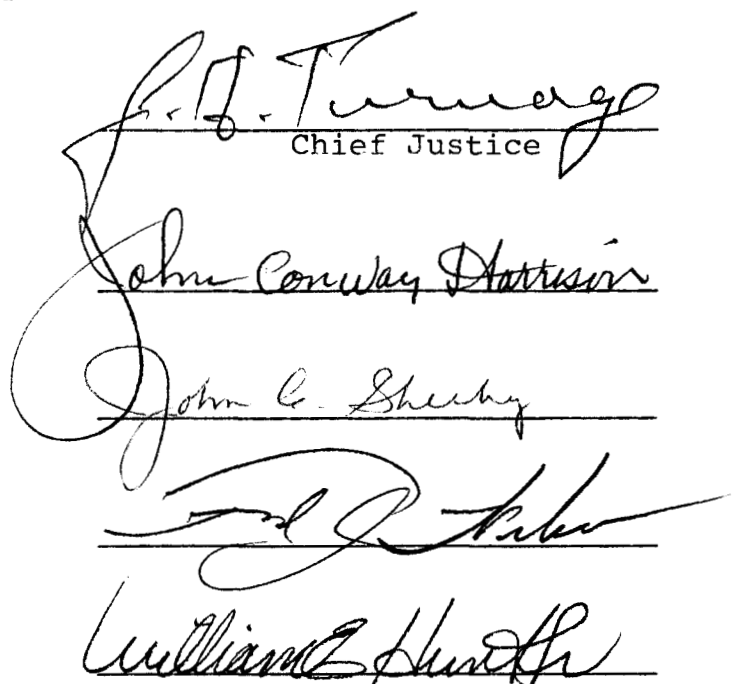 J. A. Turnage
Chief Justice
John Conway Harrison
John C. Sheehy
William E Hunt Jr